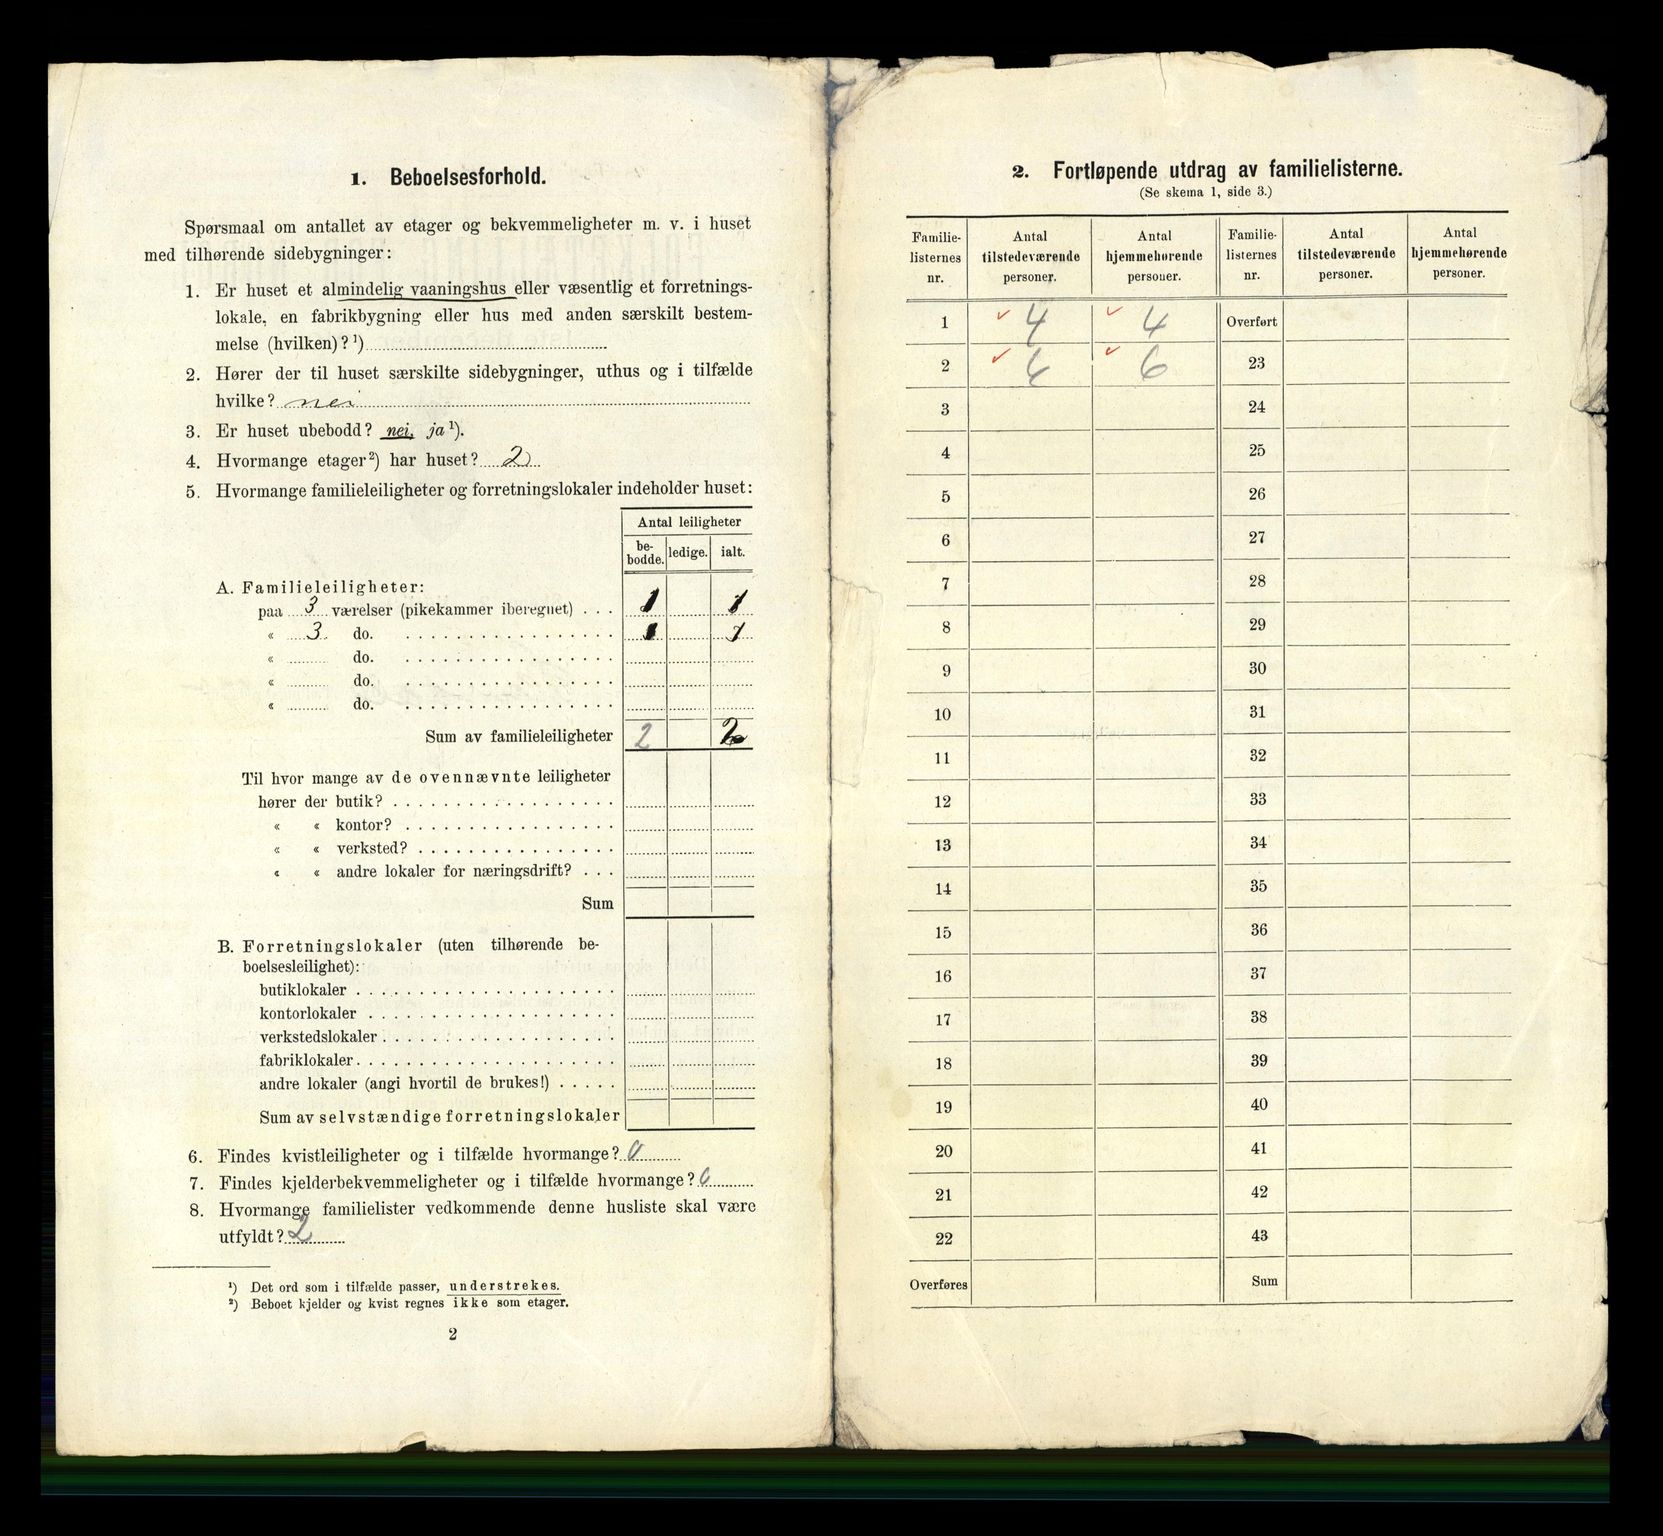 1. Beboelsesforhold.
Spørsmaal om antallet av etager og bekvemmeligheter m. v. i huset
med tilhørende sidebygninger:
1. Er huset et almindelig vaaningshus eller væsentlig et forretnings-
lokale, en fabrikbygning eller hus med anden særskilt bestem-
melse (hvilken)?¹)
2. Hører der til huset særskilte sidebygninger, uthus og i tilfælde
hvilke? nei
3. Er huset ubebodd? nei, ja¹).
4. Hvormange etager²) har huset? 2
5. Hvormange familieleiligheter og forretningslokaler indeholder huset:
Antal leiligheter
be-bodde. ledige. ialt.
A. Familieleiligheter:
paa 3 værelser (pikekammer iberegnet) . . . 1 1
« 3 do. 1 1
« do.
« do.
« do.
Sum av familieleiligheter 2 2
Til hvor mange av de ovennævnte leiligheter
hører der butik?
« « kontor?
« « verksted?
« « andre lokaler for næringsdrift?
Sum
B. Forretningslokaler (uten tilhørende be-
boelsesleilighet):
butiklokaler
kontorlokaler
verkstedslokaler
fabriklokaler
andre lokaler (angi hvortil de brukes!)
Sum av selvstændige forretningslokaler
6. Findes kvistleiligheter og i tilfælde hvormange? 0
7. Findes kjelderbekvemmeligheter og i tilfælde hvormange? 0
8. Hvormange familielister vedkommende denne husliste skal være
utfyldt? 2
¹) Det ord som i tilfælde passer, understrekes.
²) Beboet kjelder og kvist regnes ikke som etager.
2
2. Fortløpende utdrag av familielisterne.
(Se skema 1, side 3.)
Familie-listernes nr. Antal tilstedeværende personer. Antal hjemmehørende personer. Familie-listernes nr. Antal tilstedeværende personer. Antal hjemmehørende personer.
1 4 4 Overført
2 6 6 23
3 24
4 25
5 26
6 27
7 28
8 29
9 30
10 31
11 32
12 33
13 34
14 35
15 36
16 37
17 38
18 39
19 40
20 41
21 42
22 43
Overføres Sum